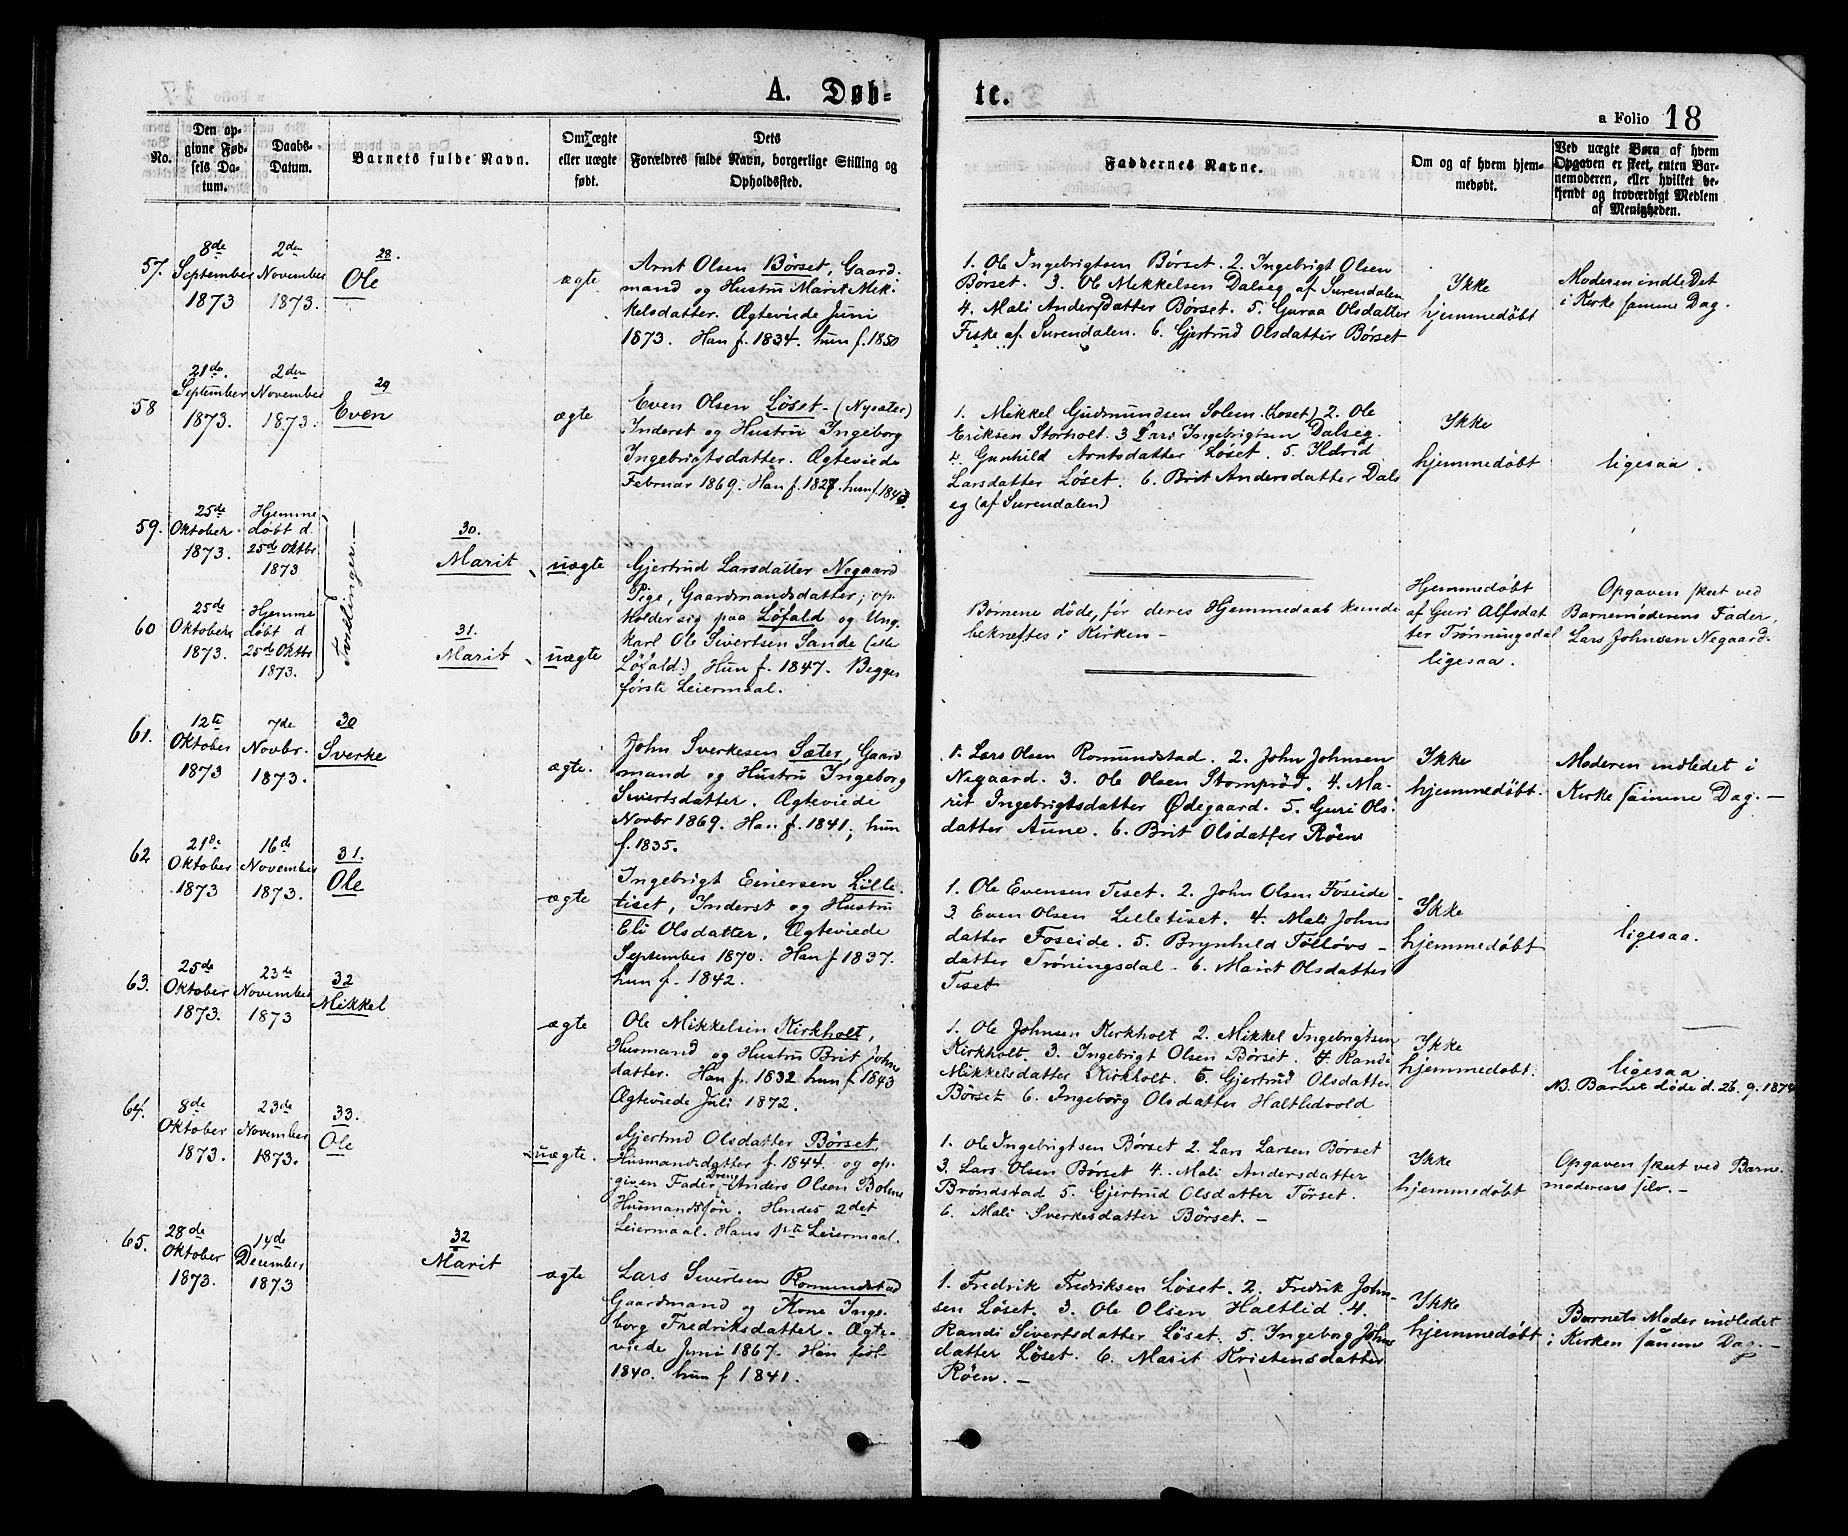 A. Døb-
te.
a Folio 18
No.
Den op-
givne Fød-
sels Da-
tum.
Daabs-
Datum.
Barnets fulde Navn.
Om ægte
eller uægte
født.
Dets
Forældres fulde Navn, borgerlige Stilling og
Opholdssted.
Faddernes Navne.
Om og af hvem hjem-
medøbt.
Ved uægte Børn af hvem
Opgaven er skeet, enten Bar-
nemoderen, eller hvilket be-
kjendt og troværdigt Medlem
af Menigheden.
57.
8de
September
1873
2den
November
1873.
28.
Ole
ægte
Arnt Olsen Børset, Gaard-
mand og Hustru Marit Mek-
kelsdatter. Ægteviede Juni
1873. Han f. 1834. hun f. 1850
1. Ole Ingebrigtsen Børset. 2. Ingebrigt Olsen
Børset. 3. Ole Mekkelsen Dalseg af Surendalen
4. Mali Andersdatter Børset. 5. Guraa Olsdatter
Fiske af Surendalen. 6. Gjertrud Olsdatter Børset
Ikke
hjemmedøbt
Moderen indledet
i Kirke samme Dag.
58
21de.
September
1873.
2den
November
1873.
29
Even
ægte
Even Olsen Løset - (Nysæter)
Inderst og Hustru Ingeborg
Ingebrigtsdatter. Ægteviede
Februar 1869. Han f. 1827. hun f. 1843.
1. Mikkel Gudmundsen Solem (Løset) 2. Ole
Eriksen Storholt. 3 Lars Ingebrigtsen Dalseg.
4. Gunhild Arntsdatter Løset. 5. Ildrid
Larsdatter Løset. 6. Brit Andersdatter Dals
eg (af Surendalen)
Ikke
hjemmedøbt
ligesaa.
59.
25de
Oktober
1873.
Hjemme
døbt d.
25de Oktbr
1873
Tvillinger.-
30.
Marit
uægte
Gjertrud Larsdatter Negaard
Pige, Gaardmandsdatter; op-
holder sig paa Løfald og Ung-
karl Ole Sivertsen Sande (elle
Løfald.) Hun f. 1847. Begges
første Leiermaal.
Børnene døde, før deres Hjemmedaab kunde
bekræftes i Kirken -
Hjemmedøbt
af Guri Alfsdat
ter Trønningsdal
Opgaven skeet ved
Barnemoderens Fader,
Lars Johnsen Negaard.
60
25de
Oktober
1873.
Hjemme
døbt d
25de Oktbr
1873.
31.
Marit
uægte
ligesaa.
61.
12te
Oktober
1873
7de
Novbr.
1873.
30
Sverke
ægte.
John Sverkesen Sæter, Gaard
mand og Hustru Ingeborg
Sivertsdatter. Ægteviede
Novbr 1869. Han f. 1841; hun
f. 1835.
1. Lars Olsen Romundstad. 2. John Johnsen
Negaard. 3. Ole Olsen Stomprød. 4. Ma-
rit Ingebrigtsdatter Ødegaard. 5. Guri Ols-
datter Aune. 6. Brit Olsdatter Røen
Ikke
hjemmedøbt.
Moderen indledet i
Kirke samme Dag.-
62
21de
Oktober
1873
16de
November
1873.
31.
Ole
ægte
Ingebrigt Einersen Lille-
tiset, Inderst og Hustru
Eli Olsdatter. Ægteviede
September 1870. Han f 1837.
hun f. 1842.
1. Ole Evensen Tiset. 2. John Olsen Foseide
3. Even Olsen Lilletiset. 4. Mali Johns
datter Foseide. 5. Brynhild Tølløvs-
datter Trøningsdal - 6. Marit Olsdatter
Tiset
Ikke
hjemmedøbt
ligesaa.
63.
25de
Oktober
1873.
23de
November
1873
32
Mikkel
ægte
Ole Mikkelsen Kirkholt,
Husmand og Hustru Brit Johns
datter. Han f. 1832 hun f 1843
Ægteviede Juli 1872.
1. Ole Johnsen Kirkholt 2. Mikkel Ingebrigtsen
Kirkholt. 3. Ingebrigt Olsen Børset. 4. Randi
Mikkelsdatter Kirkholt. 5. Gjertrud Olsdatter
Børset. 6. Ingeborg Olsdatter Haltlidvold
Ikke
hjemmedøbt.
ligesaa.
NB. Barnet døde d. 26. 9. 1874
64.
8de
Oktober
1873.
23de
November
1873.
33.
Ole
uægte.
Gjertrud Olsdatter Børset,
Husmandsdatter f. 1844. og op-
given Fader Dreng Anders Olsen Bolme
Husmandssøn. Hendes 2det
Leiermaal. Hans 1ste Leiermaal.
1. Ole Ingebrigtsen Børset 2. Lars Larsen Børset
3. Lars Olsen Børset 4. Mali Andersdatter
Brøndstad 5. Gjertrud Olsdatter Tørset.
6. Mali Sverkesdatter Børset. -
Ikke
hjemmedøbt
Opgaven skeet ved Barne-
moderens selv.-
65.
28de
Oktober
1873.
14de
December
1873
32
Marit
ægte
Lars Sivertsen Romundstad
Gaardmand og Kone Inge-
borg Fredriksdatter. Ægte-
viede Juni 1867. Han født
1840. hun f 1841.
1. Fredrik Fredriksen Løset. 2. Fredrik John-
sen Løset. 3. Ole Olsen Haltlid. 4.
Randi Sivertsdatter Løset. 5. Ingeborg Johns
datter Løset. 6. Marit Kristensdatter
Røen. -
Ikke
hjemmedøbt
Barnets Moder indledet
i Kirken samme Dag.-